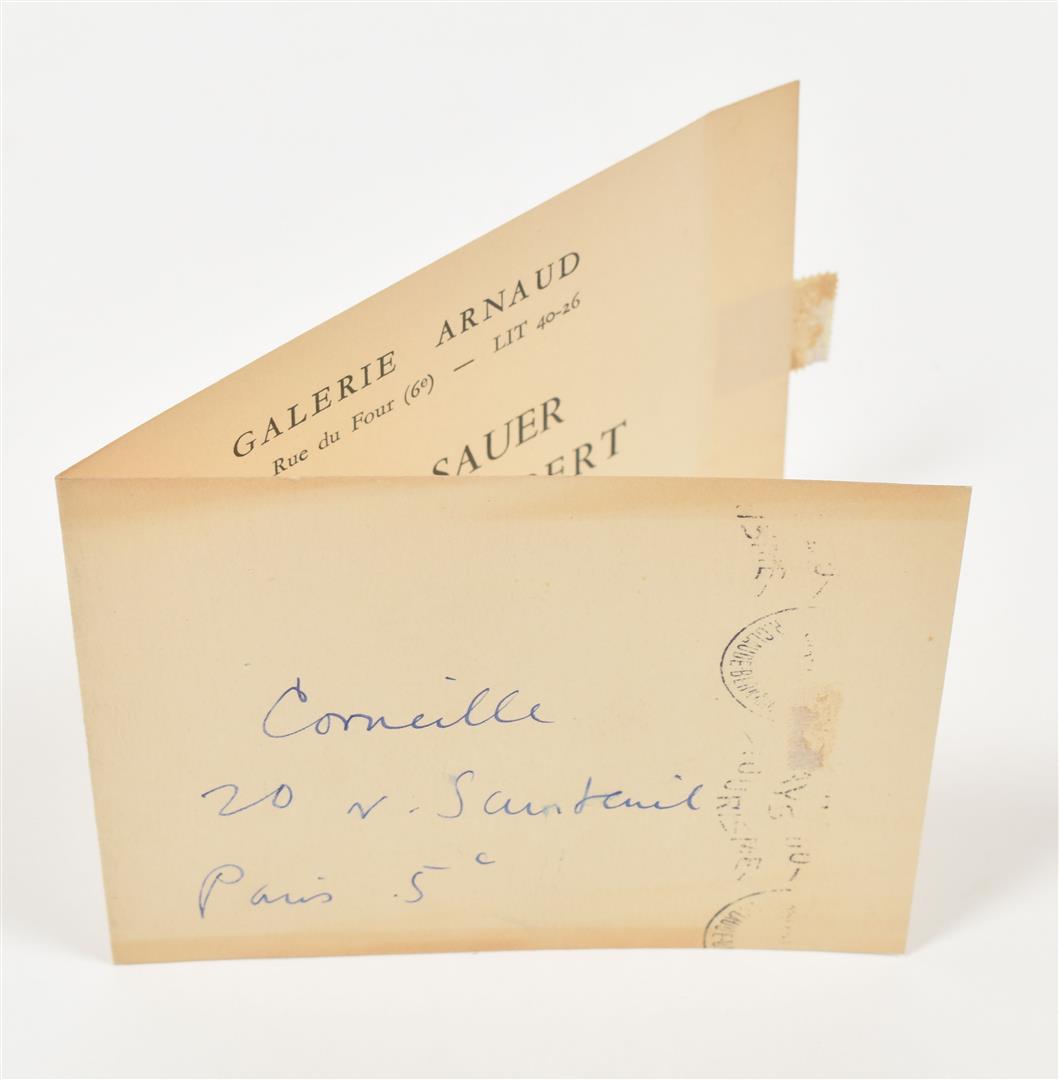 GALERIE ARNAUD
Rue du Four (6e) — LIT 40-26
SAUER
Corneille
20 r. Santeuil
Paris 5e